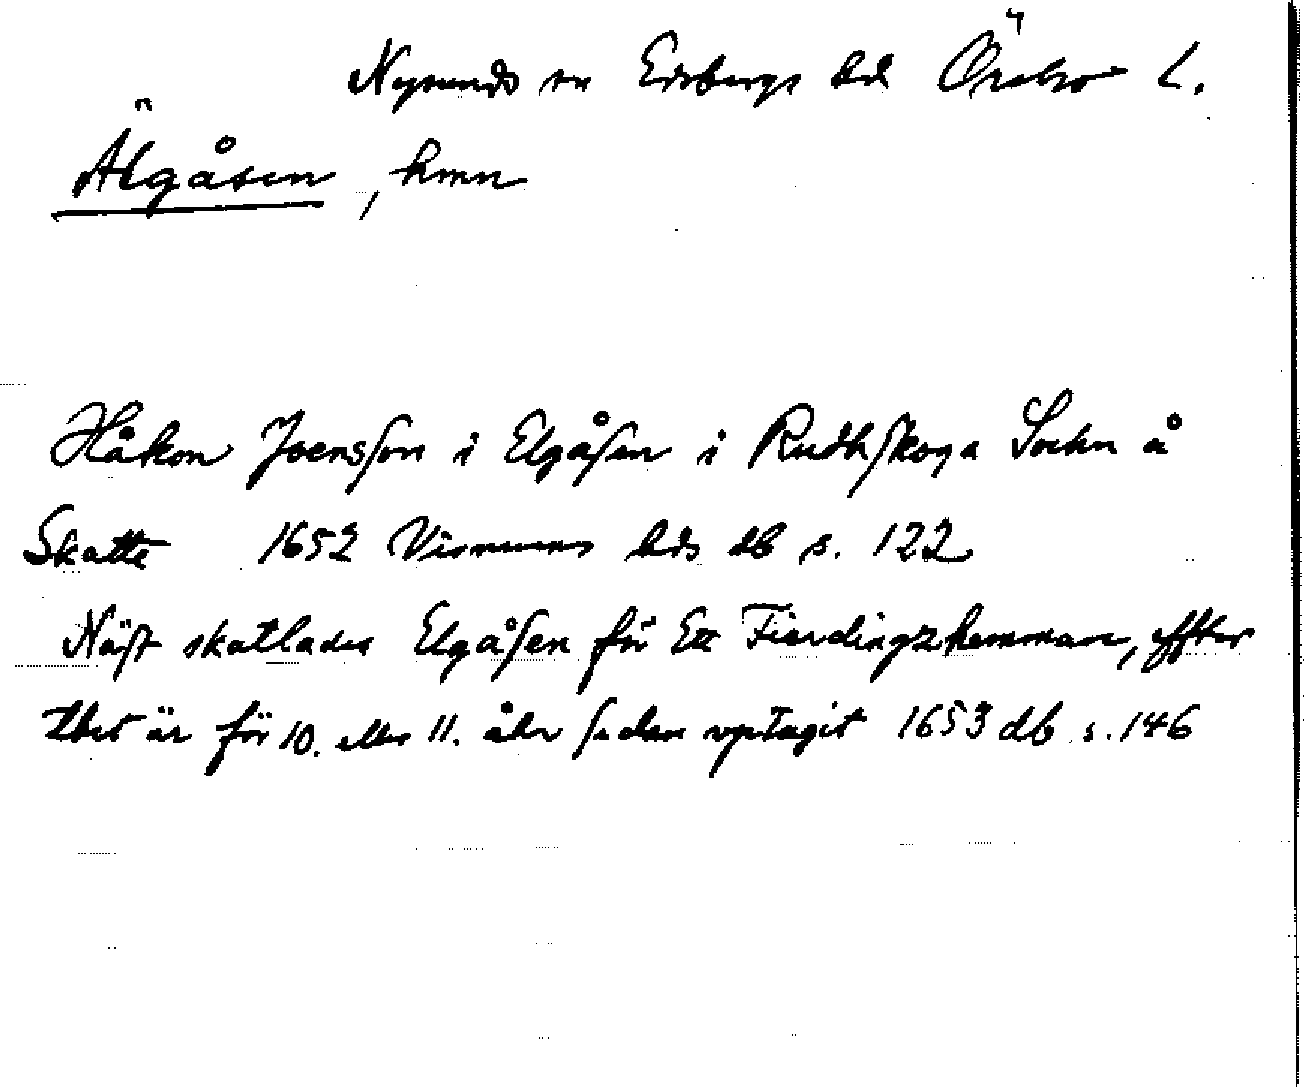 Nysunds sn Edsbergs hd Örebro L.
Älgåsen, hmn
Håkon Joensson i Elgåsen i Rudhskoga Sochn å
Skatte 1652 Visnums hds db s. 122
Näst skatlades Elgåsen för Ett Fierdingzhemman, effter
thet är för 10. eller 11. åhr sedan vptagit 1653 db s. 146